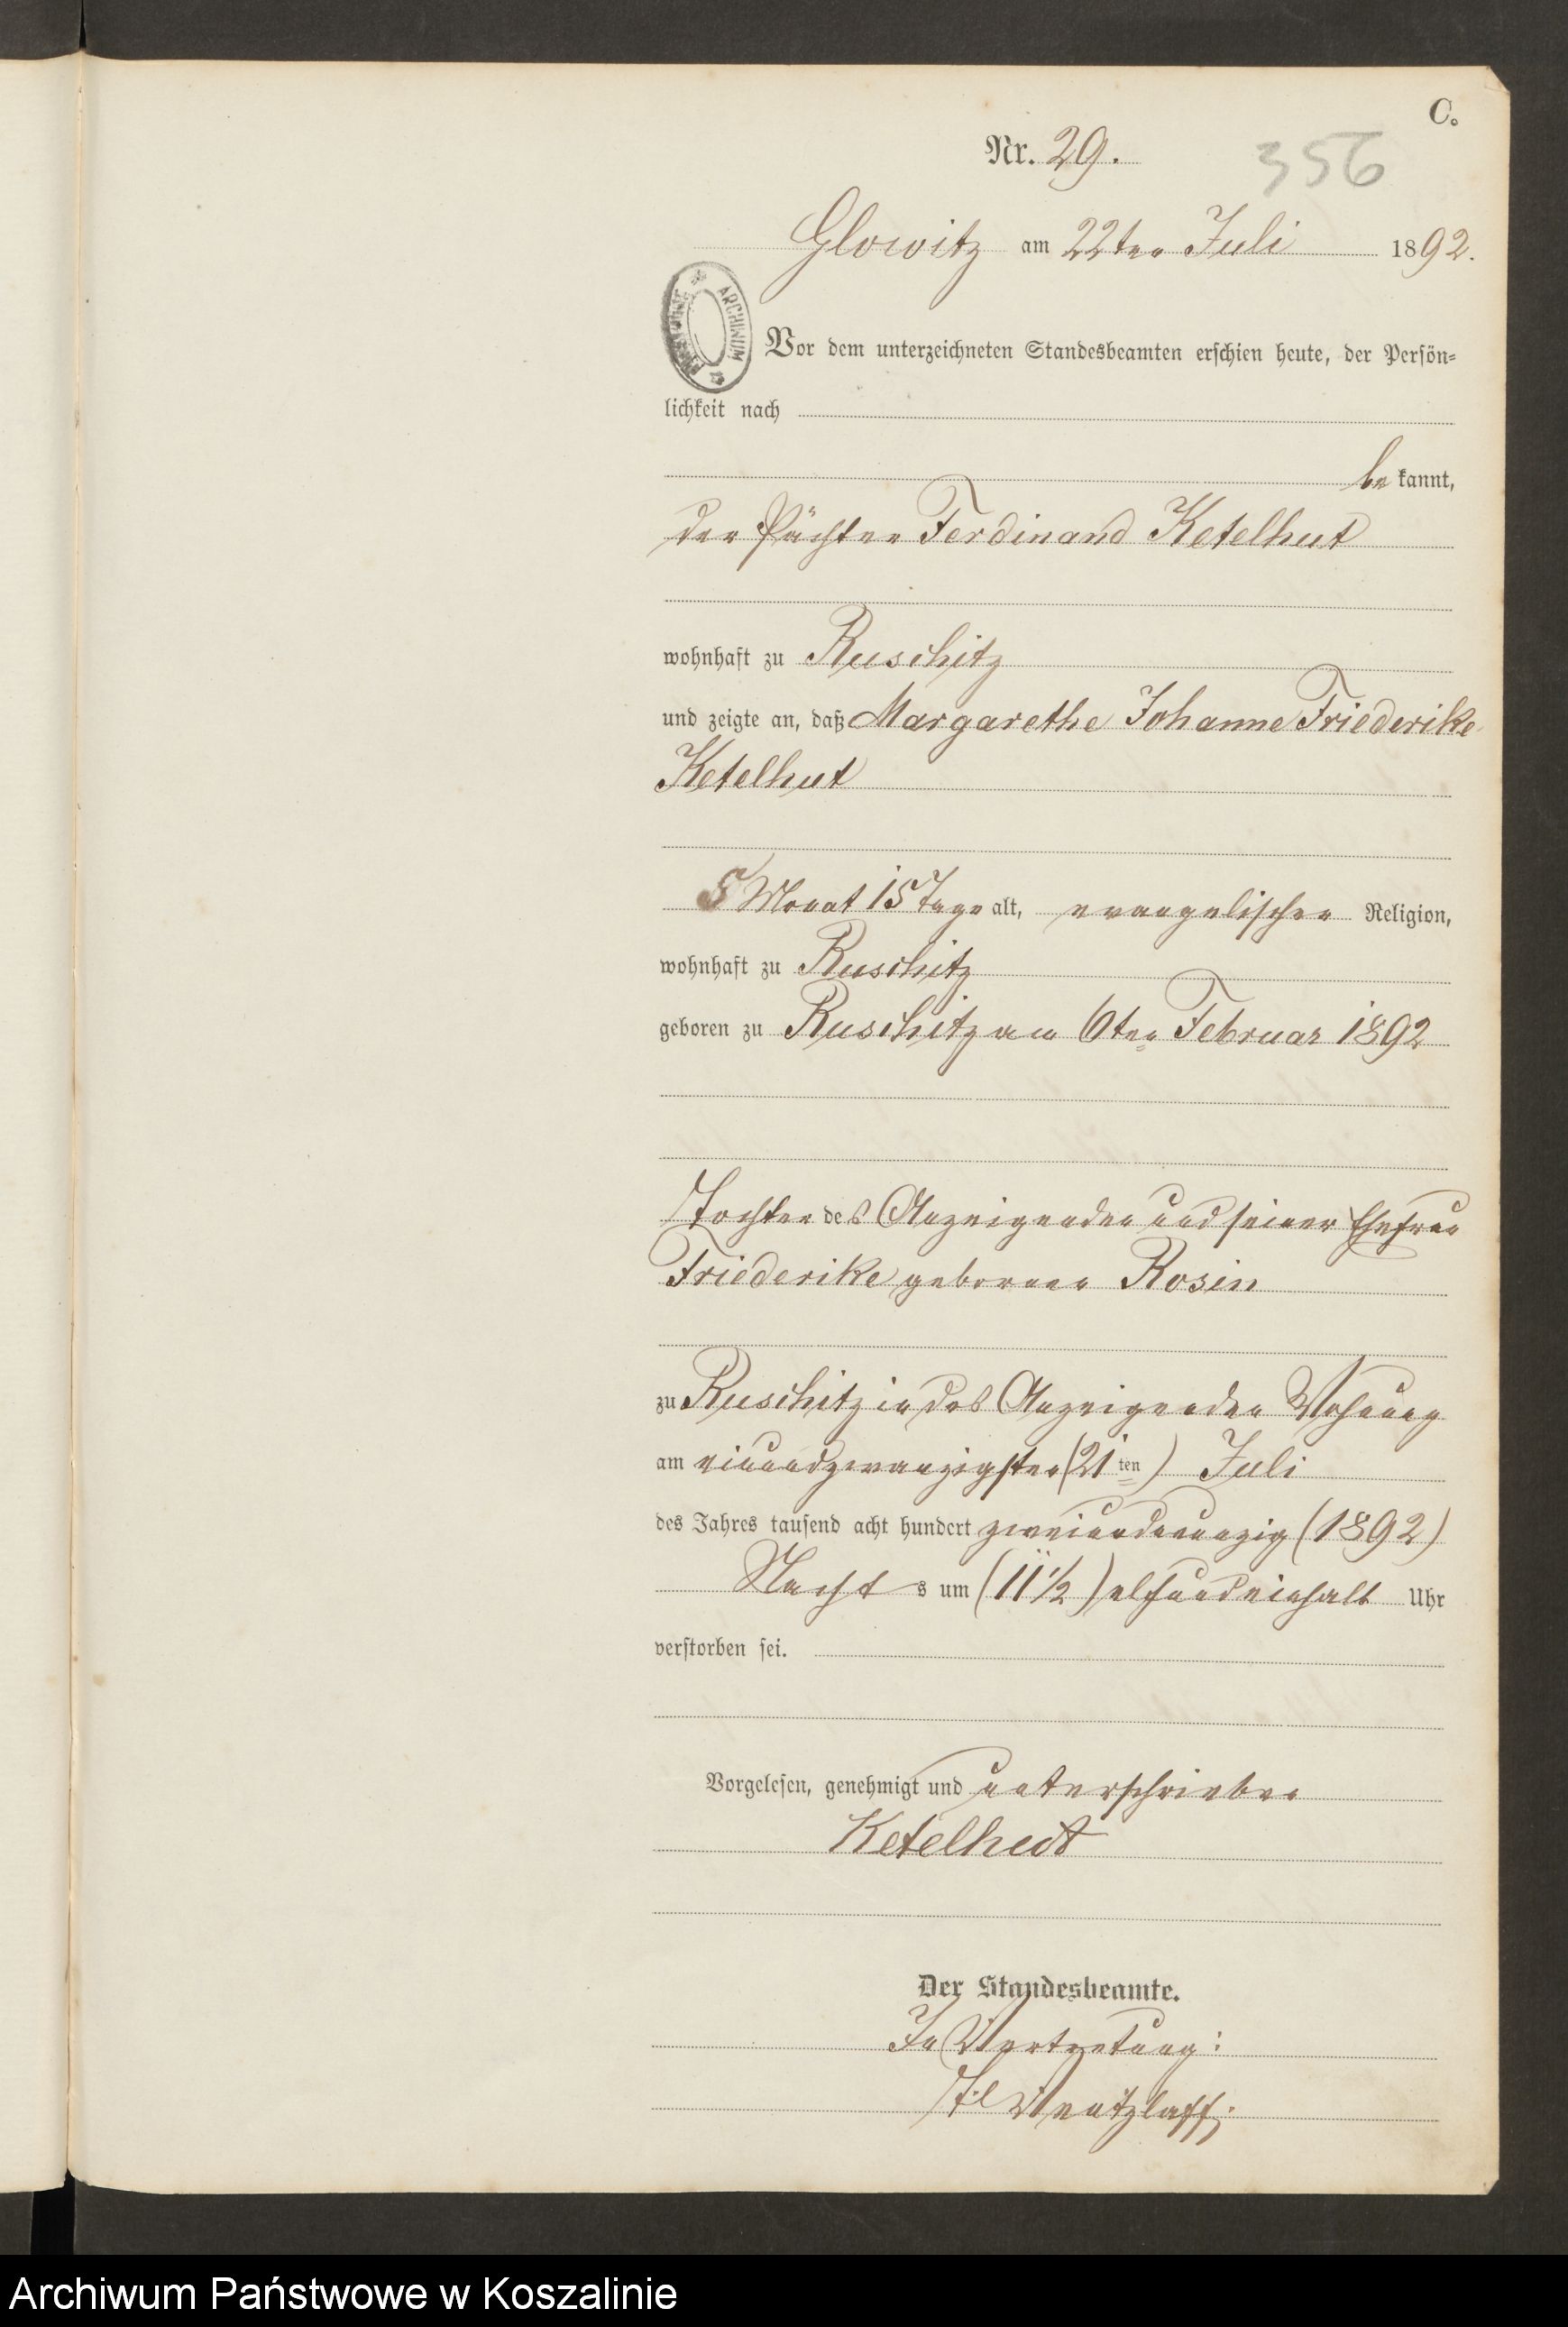 C.
Nr. 29.
356
Glowitz am 22ten Juli 1892.
ARCHIWUM
Vor dem unterzeichneten Standesbeamten erschien heute, der Persön=
lichkeit nach
be kannt,
der Pächter Ferdinand Ketelhut
wohnhaft zu Ruschitz
und zeigte an, daß Margarethe Johanne Friederike
Ketelhut
5 Monat 15 Tage alt, evangelischer Religion,
wohnhaft zu Ruschitz
geboren zu Ruschitz am 6ten Februar 1892
Tochter des Anzeigenden und seiner Ehefrau
Friederike geborner Rosin
zu Ruschitz in des Anzeigenden Wohnung
am einundzwanzigsten (21ten) Juli
des Jahres tausend acht hundert zweiundneunzig (1892)
Nachts um (11½) elfundeinhalb Uhr
verstorben sei.
Vorgelesen, genehmigt und unterschrieben
Ketelhut
Der Standesbeamte.
In Vertretung:
Wentzlaff.
Archiwum Państwowe w Koszalinie